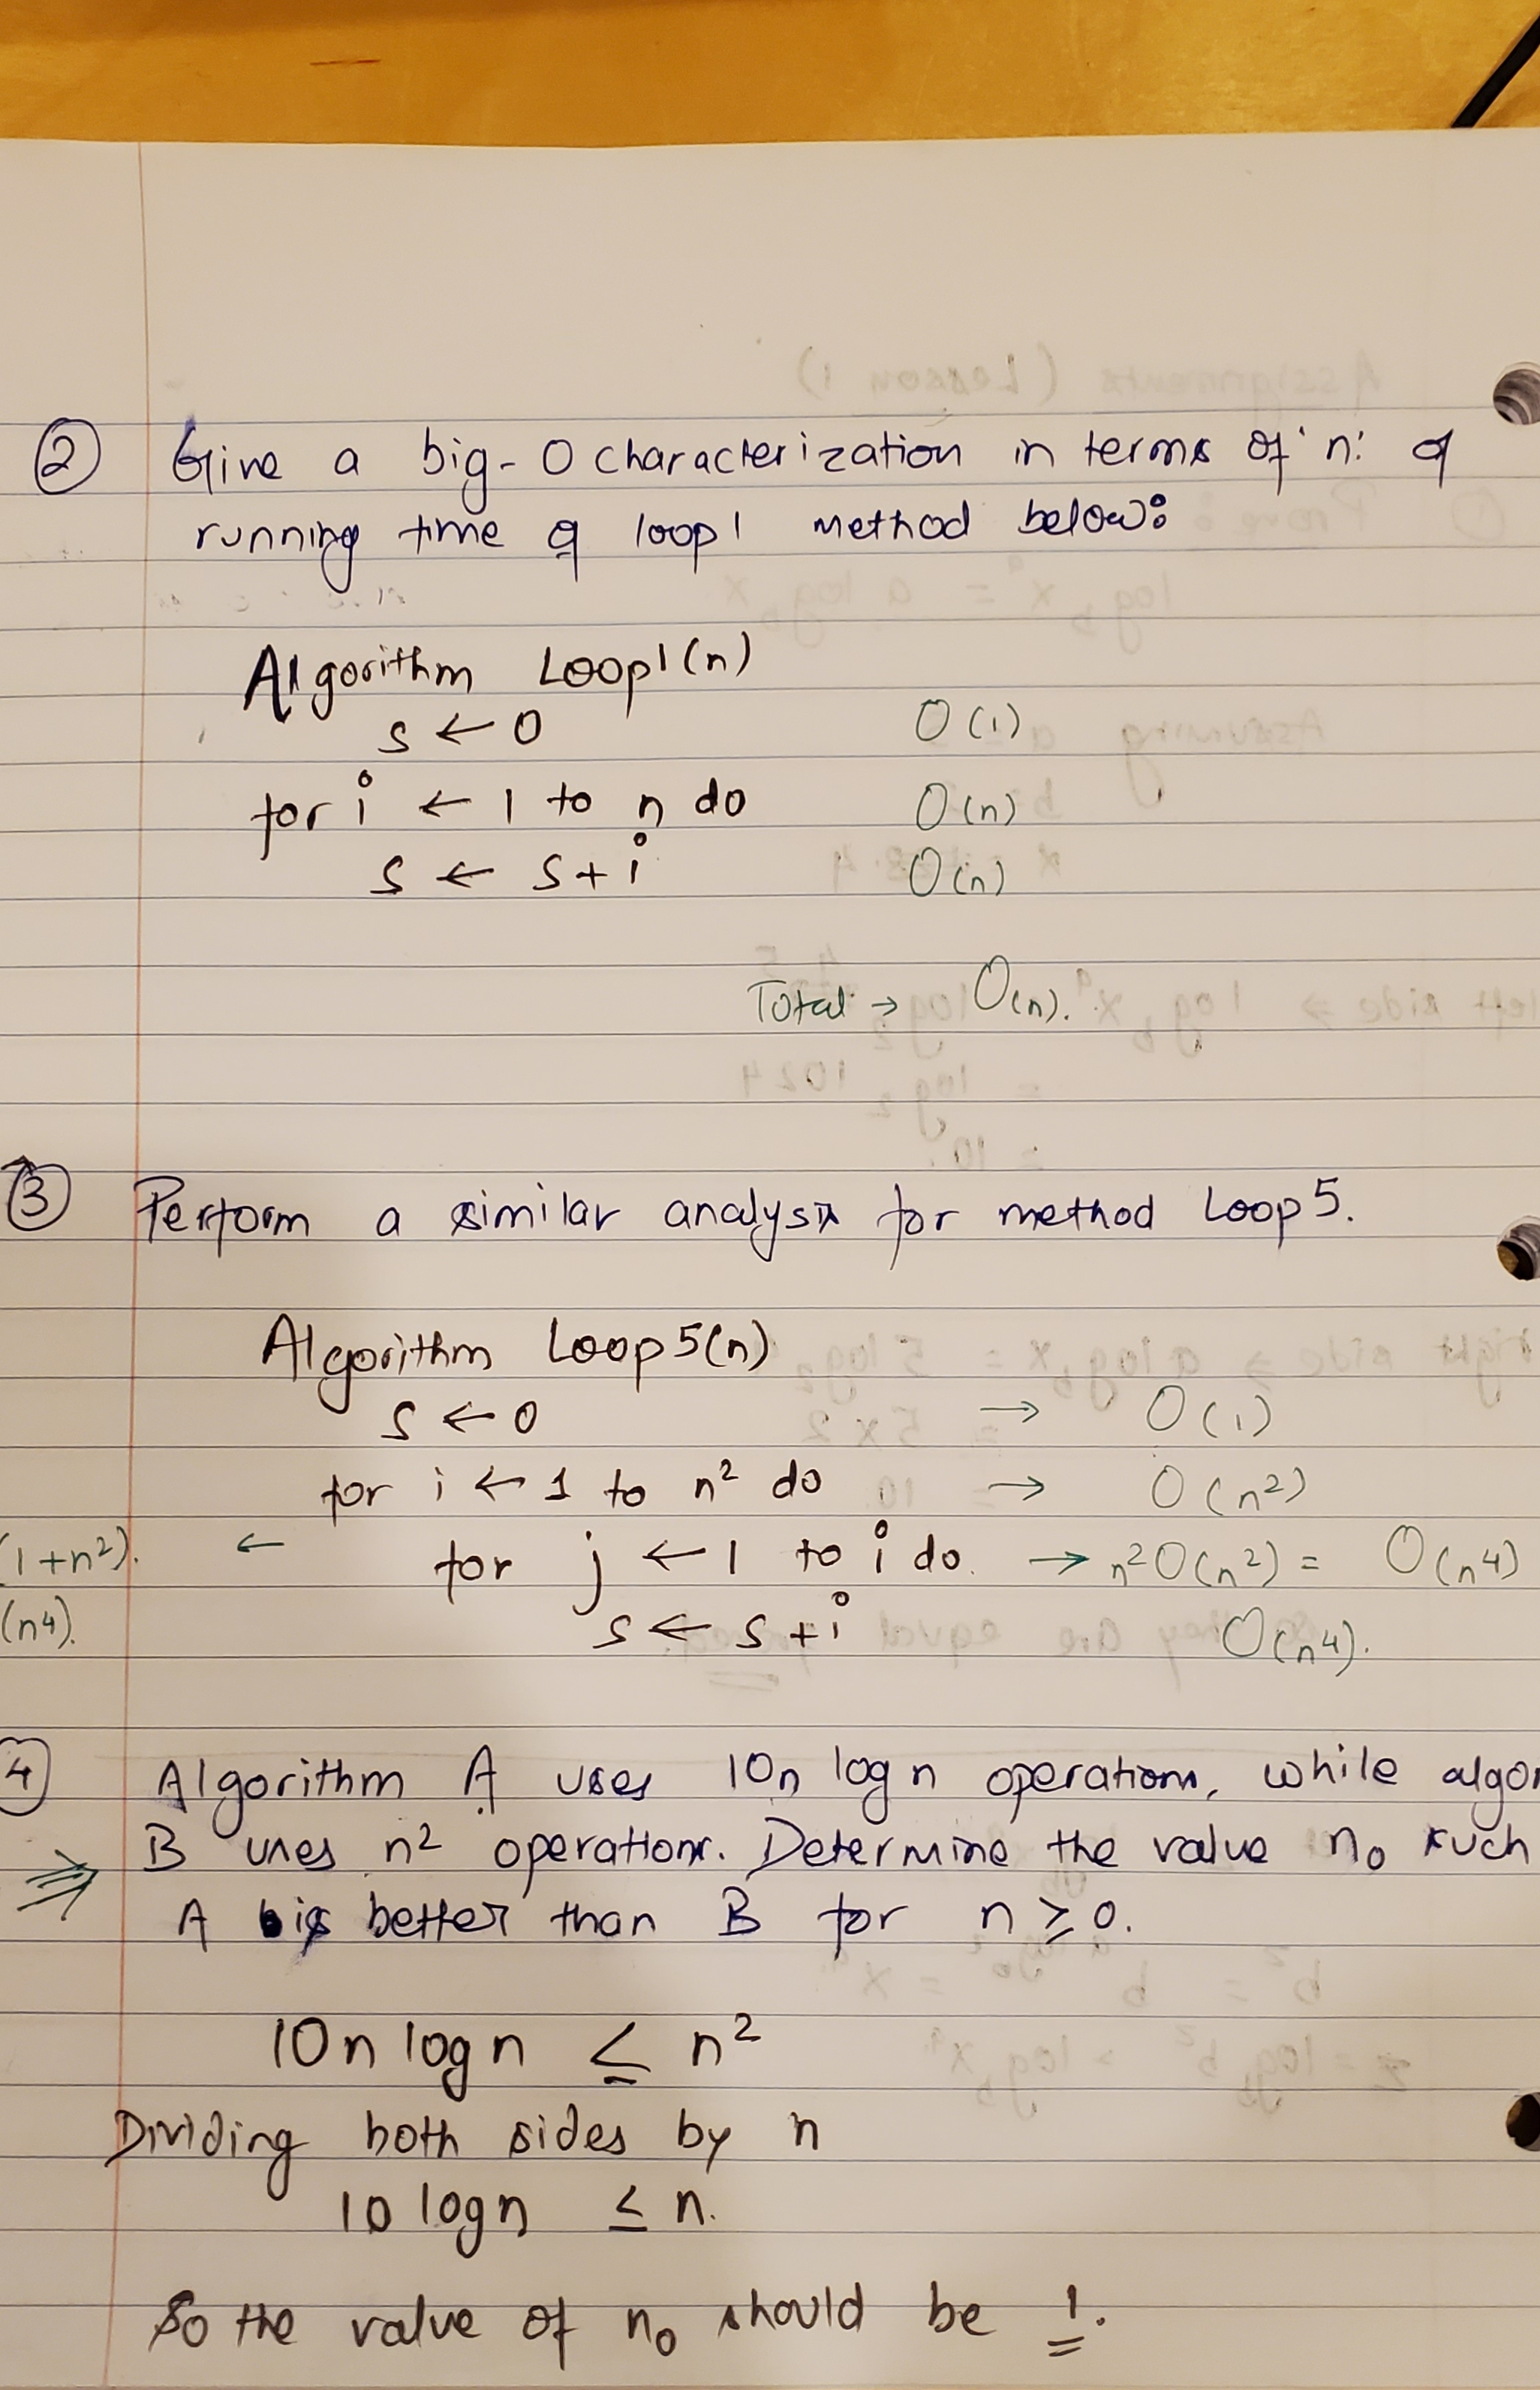 ② Give a big-O characterization in terms of 'n' of
running time of loop1 method below:
Algorithm Loop1(n)
s ← 0 O(1)
for i ← 1 to n do O(n)
s ← s+i O(n)
Total → O(n).
③ Perform a similar analysis for method Loop5.
Algorithm Loop5(n)
s ← 0 → O(1)
for i ← 1 to n² do → O(n²)
(1+n²). ← for j ← 1 to i do. → n²O(n²) = O(n4)
(n4). s ← s+i O(n4).
④ Algorithm A uses 10n log n operations, while algor
B uses n² operations. Determine the value n₀ such
⇒ A is better than B for n ≥ 0.
10n log n ≤ n²
Dividing both sides by n
10 log n ≤ n.
So the value of n₀ should be 1.